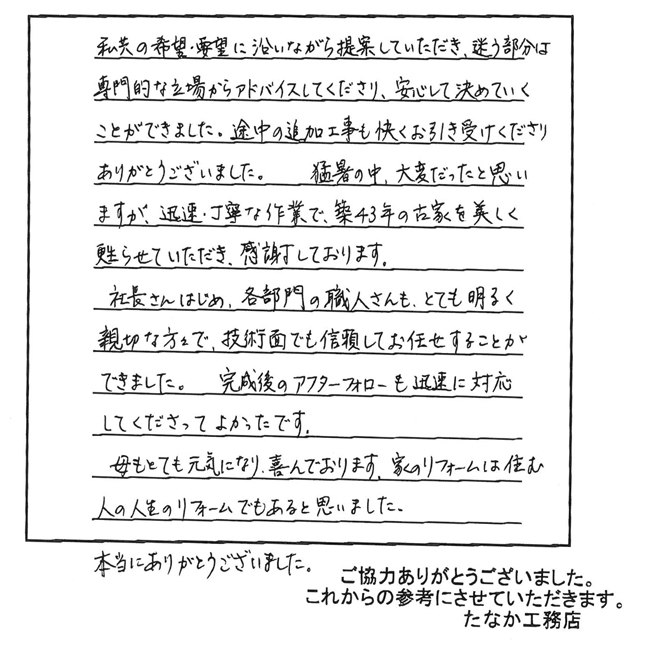 私共の希望・要望に沿いながら提案していただき、迷う部分は
専門的な立場からアドバイスしてくださり、安心して決めていく
ことができました。途中の追加工事も快くお引き受けくださり
ありがとうございました。　猛暑の中、大変だったと思い
ますが、迅速・丁寧な作業で、築43年の古家を美しく
甦らせていただき、感謝しております。
社長さんはじめ、各部門の職人さんも、とても明るく
親切な方々で、技術面でも信頼してお任せすることが
できました。　完成後のアフターフォローも迅速に対応
してくださってよかったです。
母もとても元気になり、喜んでおります。家のリフォームは住む
人の人生のリフォームでもあると思いました。
本当にありがとうございました。
ご協力ありがとうございました。
これからの参考にさせていただきます。
たなか工務店